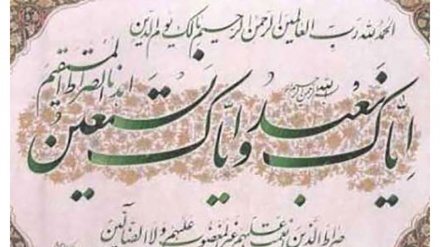 الحمد لله رب العالمین الرحمن الرحیم مالک یوم الدین
بسم الله الرحمن الرحیم
ایاک نعبد وایاک نستعین
اهدنا الصراط المستقیم
صراط الذین انعمت علیهم غیر المغضوب علیهم ولا الضالین